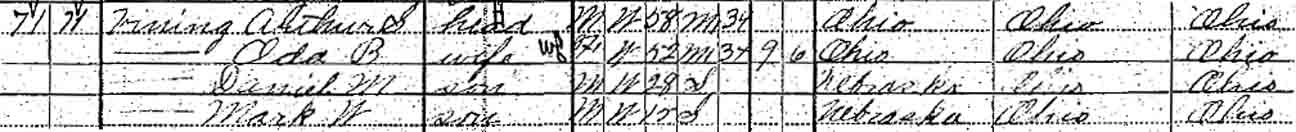 71 71 Vining Arthur S head M W 58 M 34 Ohio Ohio Ohio
— Oda B wife F W 52 M 34 9 6 Ohio Ohio Ohio
— Daniel M son M W 28 S Nebraska Ohio Ohio
— Mark W son M W 15 S Nebraska Ohio Ohio